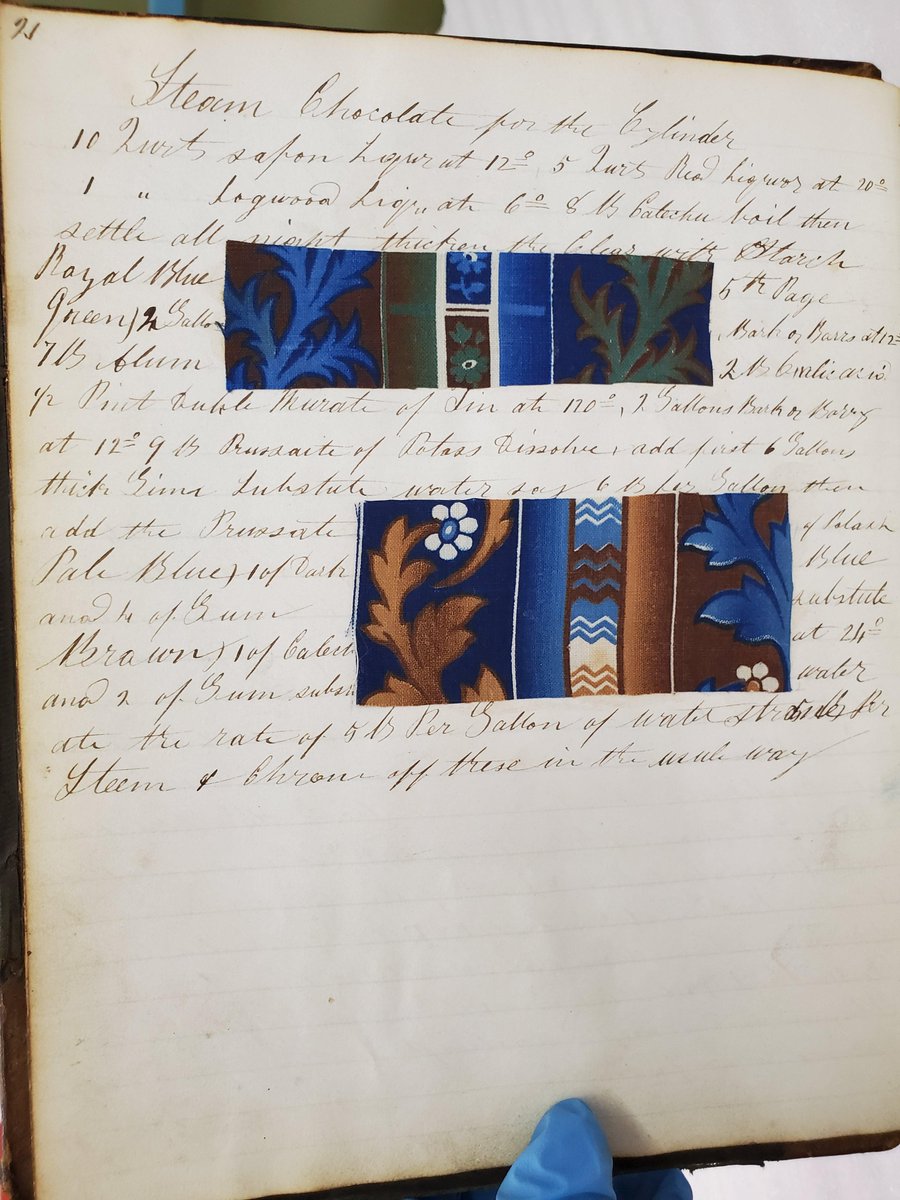 21
Steam Chocolate for the Cylinder
10 Qurts sapon Liqur at 12° 5 Qurts Read Liquor at 20°
1 " Logwood Liqr at 6° 8 lb Catechu boil then
settle all night thicken the Clear with Starch
Royal Blue 5th Page
Green) 2 Gallo Bark or Barrs at 12°
7 lb Alum 2 lb
1/2 Pint Duble Murate of Tin at 120°, 2 Gallons Bark or Barry
at 12° 9 lb Prussaite of Potass Dissolve, add first 6 Gallons
thick Gum Substute water say 6 lb per Gallon then
add the Prussiate of Potash
Pale Blue) 1 of Dark Blue
and 4 of Gum substute
Brawn) 1 of Catech at 24°
and 2 of Gum subst water
ate the rate of 5 lb Per Gallon of water
Steem & Chrome off these in the usule way